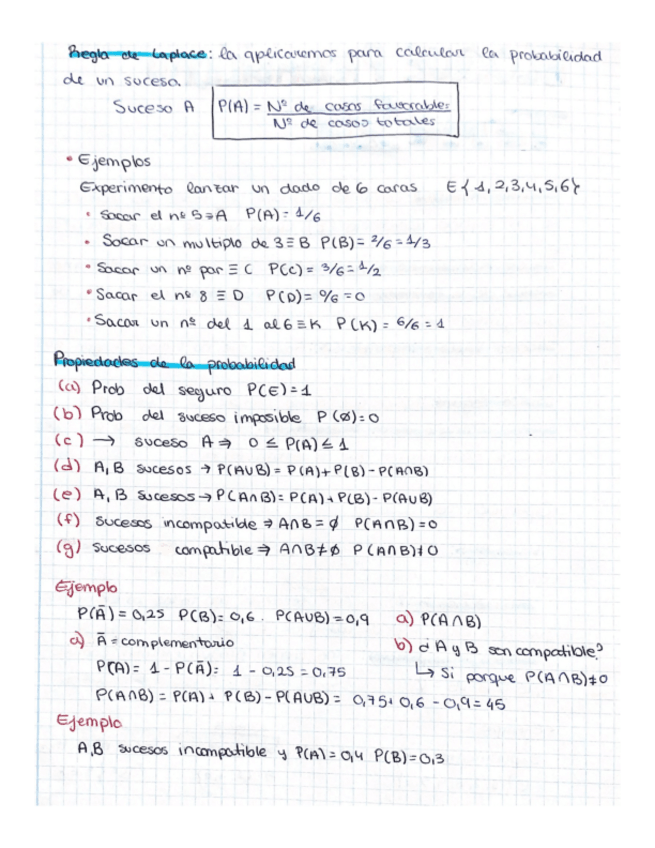 Regla de Laplace: la aplicaremos para calcular la probabilidad
de un suceso.
Suceso A P(A) = Nº de casos favorables / Nº de casos totales
• Ejemplos
Experimento lanzar un dado de 6 caras E{1,2,3,4,5,6}
• Sacar el nº 5 ≡ A P(A) = 1/6
• Sacar un multiplo de 3 ≡ B P(B) = 2/6 = 1/3
• Sacar un nº par ≡ C P(C) = 3/6 = 1/2
• Sacar el nº 8 ≡ D P(D) = 0/6 = 0
• Sacar un nº del 1 al 6 ≡ K P(K) = 6/6 = 1
Propiedades de la probabilidad
(a) Prob del seguro P(E) = 1
(b) Prob del suceso imposible P(ø) = 0
(c) → suceso A ⇒ 0 ≤ P(A) ≤ 1
(d) A, B sucesos → P(A∪B) = P(A) + P(B) - P(A∩B)
(e) A, B sucesos → P(A∩B) = P(A) + P(B) - P(A∪B)
(f) sucesos incompatible ⇒ A∩B = ø P(A∩B) = 0
(g) sucesos compatible ⇒ A∩B ≠ ø P(A∩B) ≠ 0
Ejemplo
P(Ā) = 0,25 P(B) = 0,6. P(A∪B) = 0,9 a) P(A∩B)
a) Ā = complementario b) ¿A y B son compatible?
P(A) = 1 - P(Ā) = 1 - 0,25 = 0,75 ↳ Si porque P(A∩B) ≠ 0
P(A∩B) = P(A) + P(B) - P(A∪B) = 0,75 + 0,6 - 0,9 = 45
Ejemplo
A,B sucesos incompatible y P(A) = 0,4 P(B) = 0,3